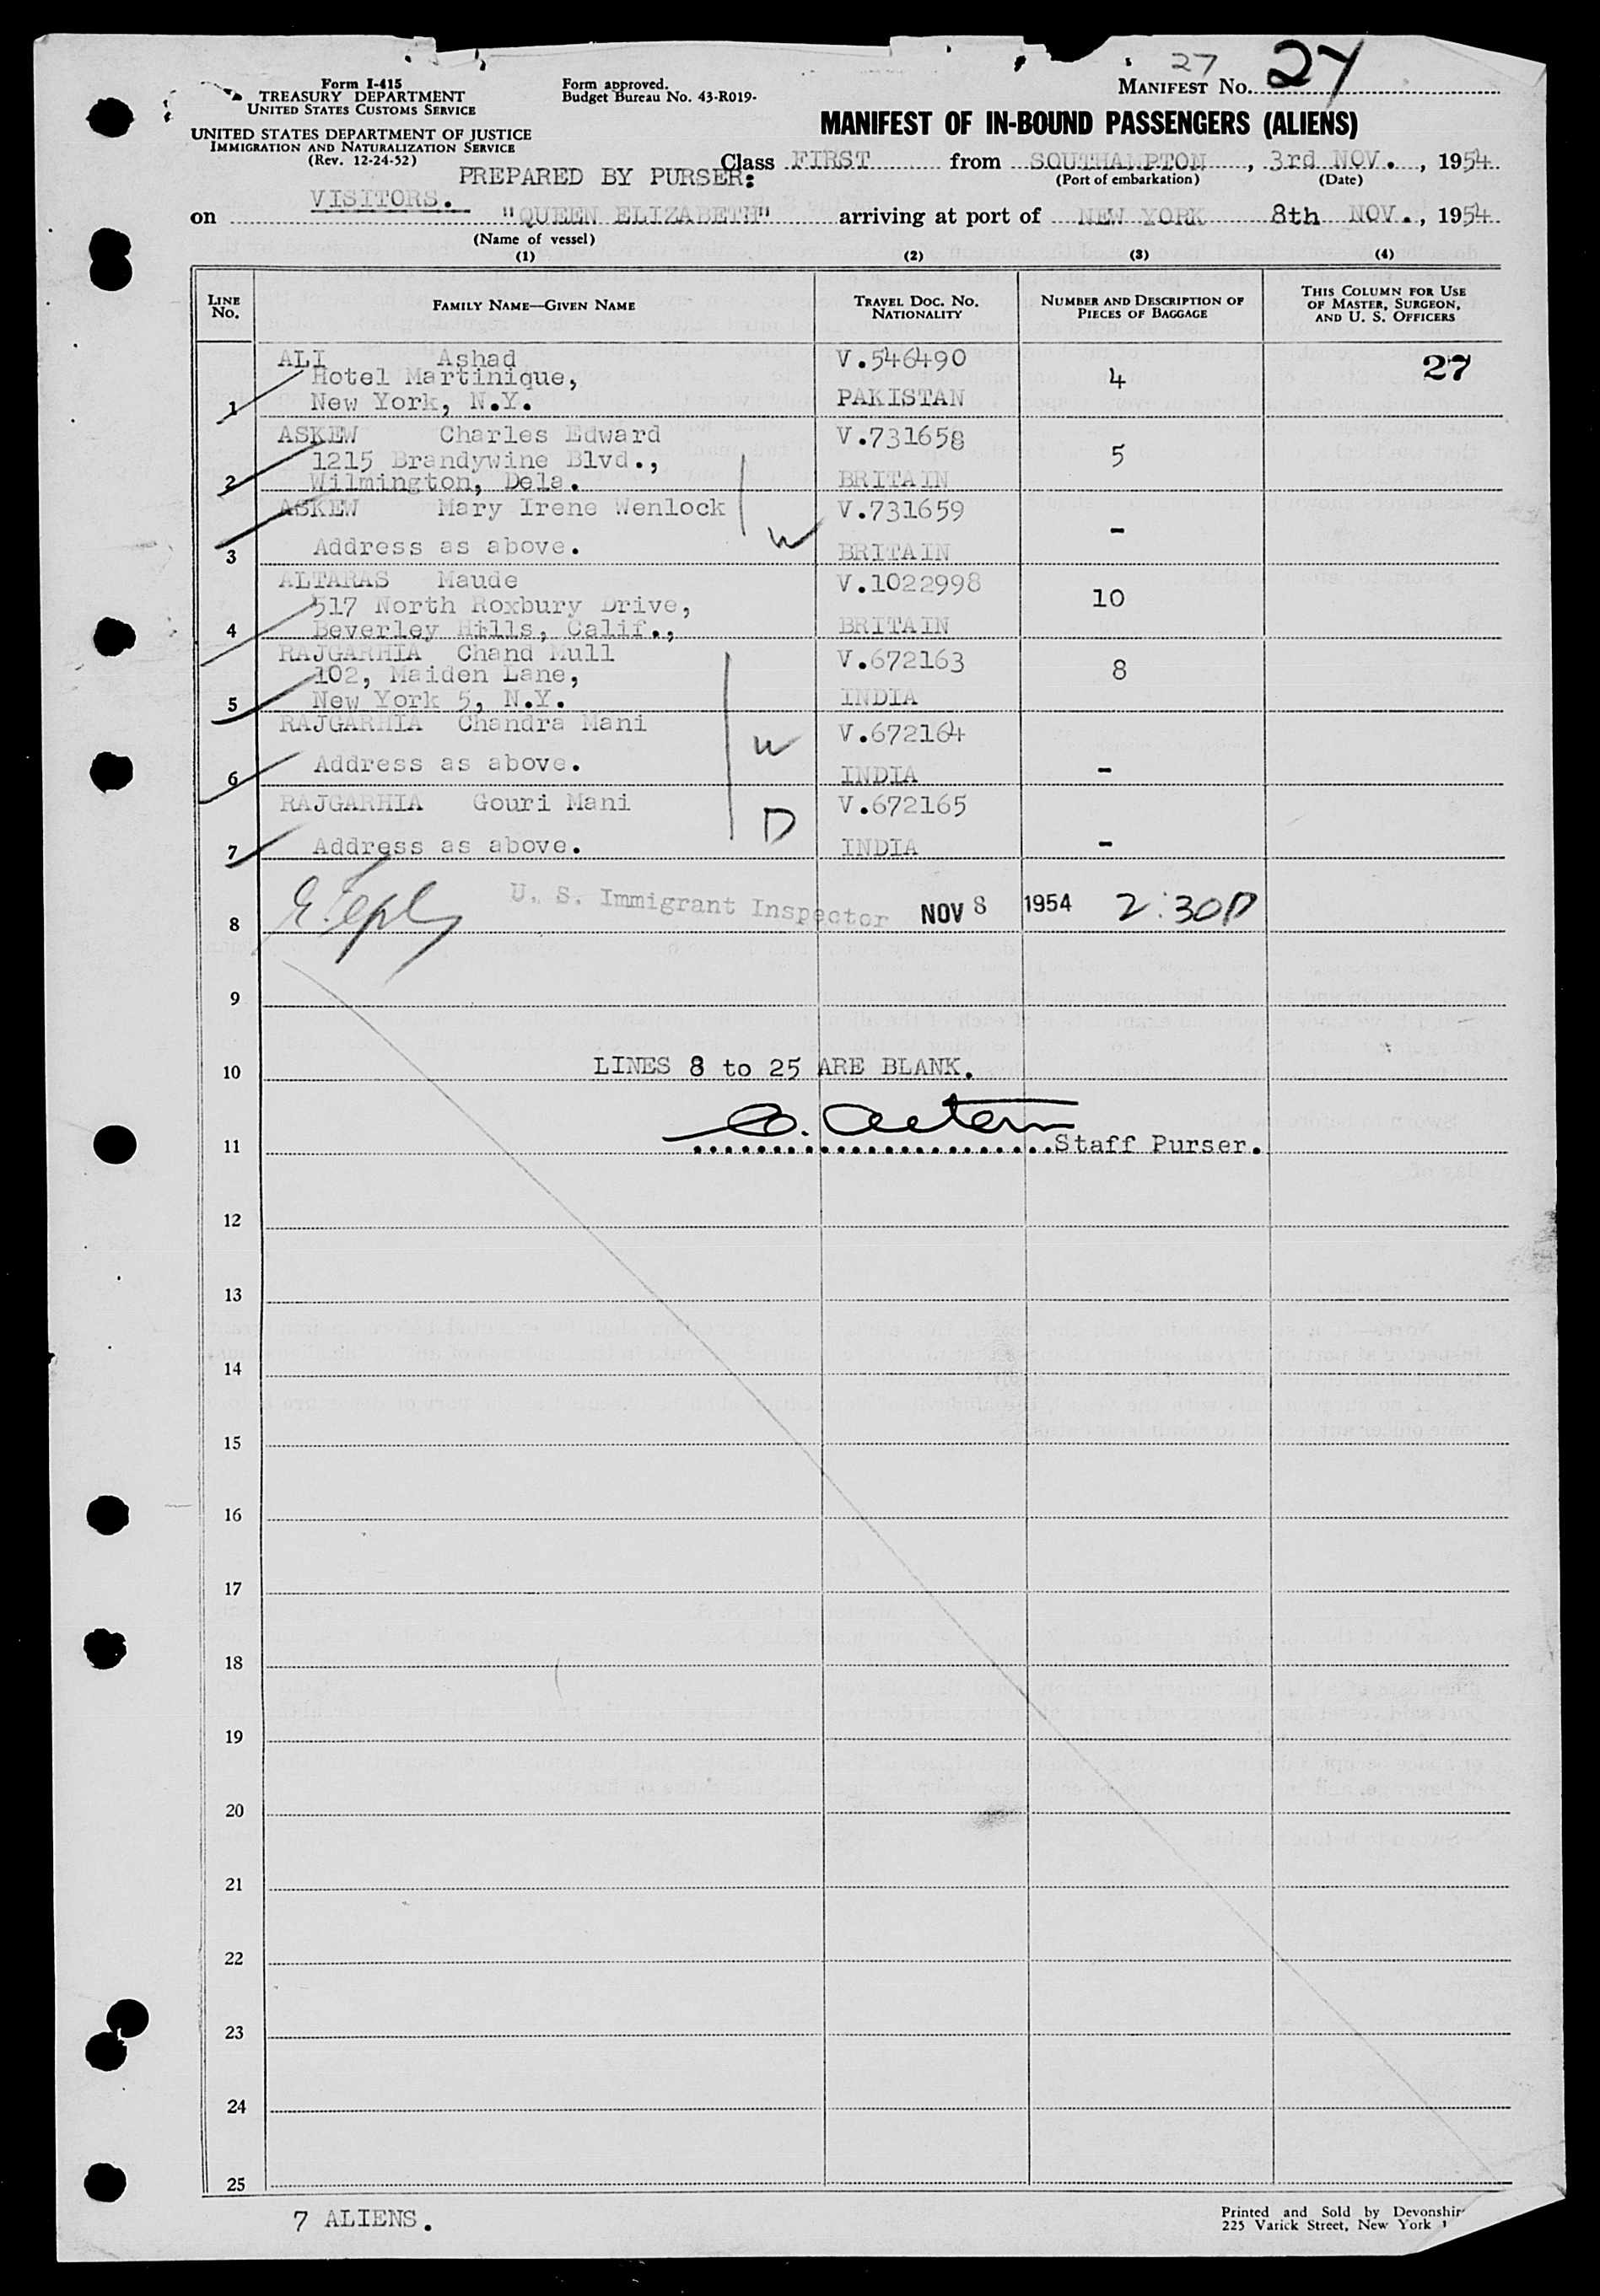 27
27
Form I-415
TREASURY DEPARTMENT
UNITED STATES CUSTOMS SERVICE
UNITED STATES DEPARTMENT OF JUSTICE
IMMIGRATION AND NATURALIZATION SERVICE
(Rev. 12-24-52)
Form approved.
Budget Bureau No. 43-R019-
MANIFEST NO.
MANIFEST OF IN-BOUND PASSENGERS (ALIENS)
Class FIRST from SOUTHAMPTON, 3rd NOV., 1954
(Port of embarkation) (Date)
PREPARED BY PURSER:
VISITORS.
on "QUEEN ELIZABETH" arriving at port of NEW YORK 8th NOV., 1954
(Name of vessel)
(1) (2) (3) (4)
LINE NO. FAMILY NAME—GIVEN NAME TRAVEL DOC. NO. NATIONALITY NUMBER AND DESCRIPTION OF PIECES OF BAGGAGE THIS COLUMN FOR USE OF MASTER, SURGEON, AND U. S. OFFICERS
ALI Ashad V.546490 27
Hotel Martinique, 4
1 New York, N.Y. PAKISTAN
ASKEW Charles Edward V.731658
1215 Brandywine Blvd., 5
2 Wilmington, Dela. BRITAIN
ASKEW Mary Irene Wenlock V.731659
W -
3 Address as above. BRITAIN
ALTARAS Maude V.1022998
517 North Roxbury Drive, 10
4 Beverley Hills, Calif., BRITAIN
RAJGARHIA Chand Mull V.672163
102, Maiden Lane, 8
5 New York 5, N.Y. INDIA
RAJGARHIA Chandra Mani V.672164
W
6 Address as above. INDIA -
RAJGARHIA Gouri Mani V.672165
D
7 Address as above. INDIA -
U. S. Immigrant Inspector NOV 8 1954 2:30P
8
9
10 LINES 8 to 25 ARE BLANK.
11 Staff Purser.
12
13
14
15
16
17
18
19
20
21
22
23
24
25
7 ALIENS.
Printed and Sold by
225 Varick Street, New York